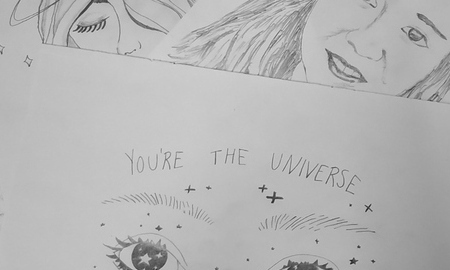 YOU'RE THE UNIVERSE